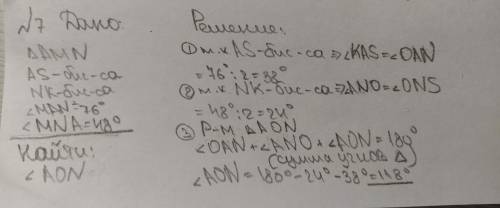 №7 Дано:
△AMN
AS-бис-са
NK-бис-са
∠MAN=76°
∠MNA=48°
Найти:
∠AON
Решение:
① т.к AS-бис-са ⇒ ∠KAS=∠OAN
=76°:2=38°
② т.к NK-бис-са ⇒ ∠ANO=∠ONS
=48°:2=24°
③ Р-м △AON
∠OAN+∠ANO+∠AON=180°
(сумма углов △)
∠AON=180°-24°-38°=118°